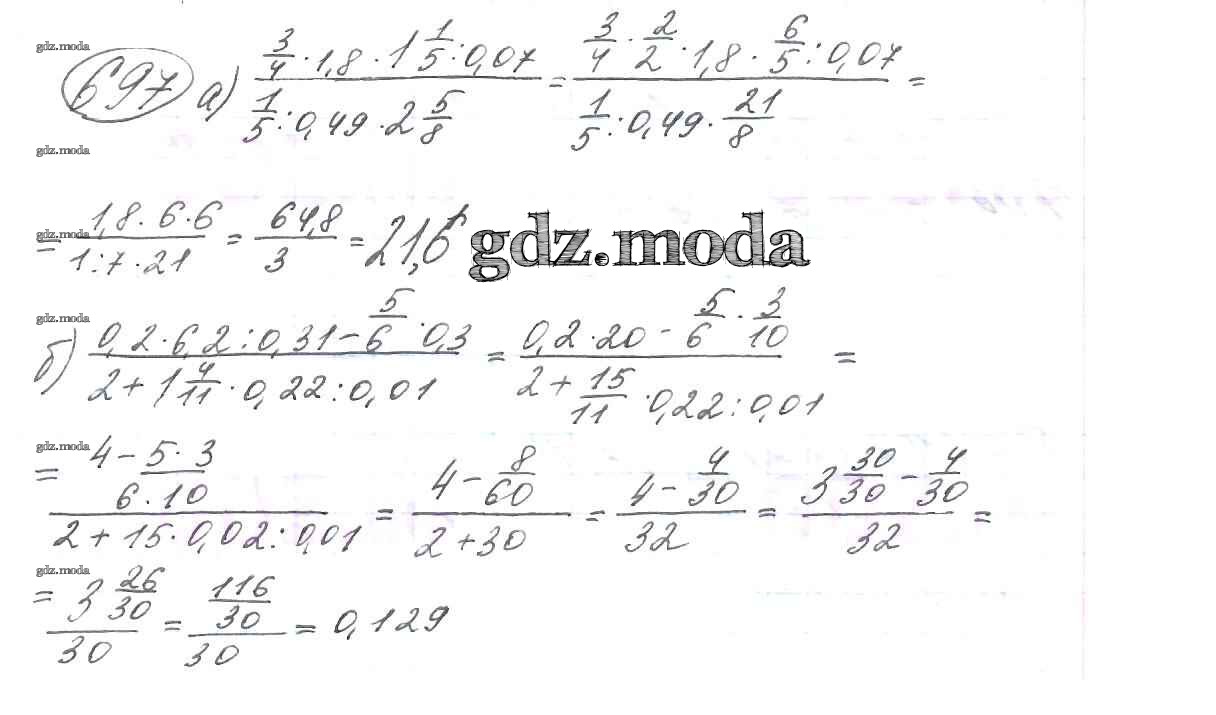 gdz.moda
697 а) (3/4 · 1,8 · 1 1/5 : 0,07)/(1/5 : 0,49 · 2 5/8) = (3/4 · 2/2 · 1,8 · 6/5 : 0,07)/(1/5 : 0,49 · 21/8) =
gdz.moda
gdz.moda
= (1,8 · 6 · 6)/(1 : 7 · 21) = 64,8/3 = 21,6
gdz.moda
gdz.moda
б) (0,2 · 6,2 : 0,31 − 5/6 · 0,3)/(2 + 1 4/11 · 0,22 : 0,01) = (0,2 · 20 − 5/6 · 3/10)/(2 + 15/11 · 0,22 : 0,01) =
gdz.moda
= (4 − (5 · 3)/(6 · 10))/(2 + 15 · 0,02 : 0,01) = (4 − 8/60)/(2 + 30) = (4 − 4/30)/32 = (3 30/30 − 4/30)/32 =
gdz.moda
= (3 26/30)/30 = (116/30)/30 = 0,129